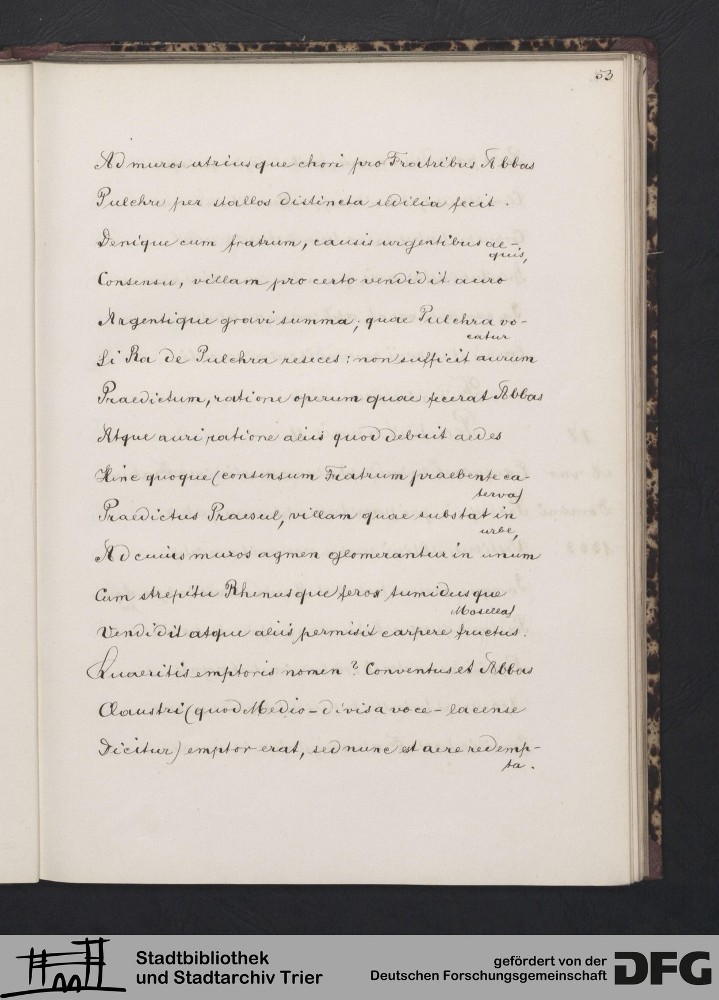 53
Ad muros utriusque chori pro Fratribus Abbas
Pulchre per stallos distincta sedilia fecit.
Denique cum fratrum, causis urgentibus ae-
quis,
Consensu, villam pro certo vendidit auro
Argentique gravi summa; quae Pulchra vo-
catur
Si Ra de Pulchra reseces: non sufficit aurum
Praedictum, ratione operum quae fecerat Abbas
Atque auri ratione aliis quod debuit aedes
Hinc quoque (consensum Fratrum praebente ca-
terva)
Praedictus Praesul, villam quae substat in
urbe,
Ad cuius muros agmen glomerantur in unum
Cum strepitu Rhenusque ferox tumidusque
Mosella)
Vendidit atque aliis permisit carpere fructus.
Quaeritis emptoris nomen? Conventus et Abbas
Claustri (quod Medio-divisa voce-lacense
Dicitur) emptor erat, sed nunc est aere redemp-
ta.
Stadtbibliothek
und Stadtarchiv Trier
gefördert von der
Deutschen Forschungsgemeinschaft
DFG